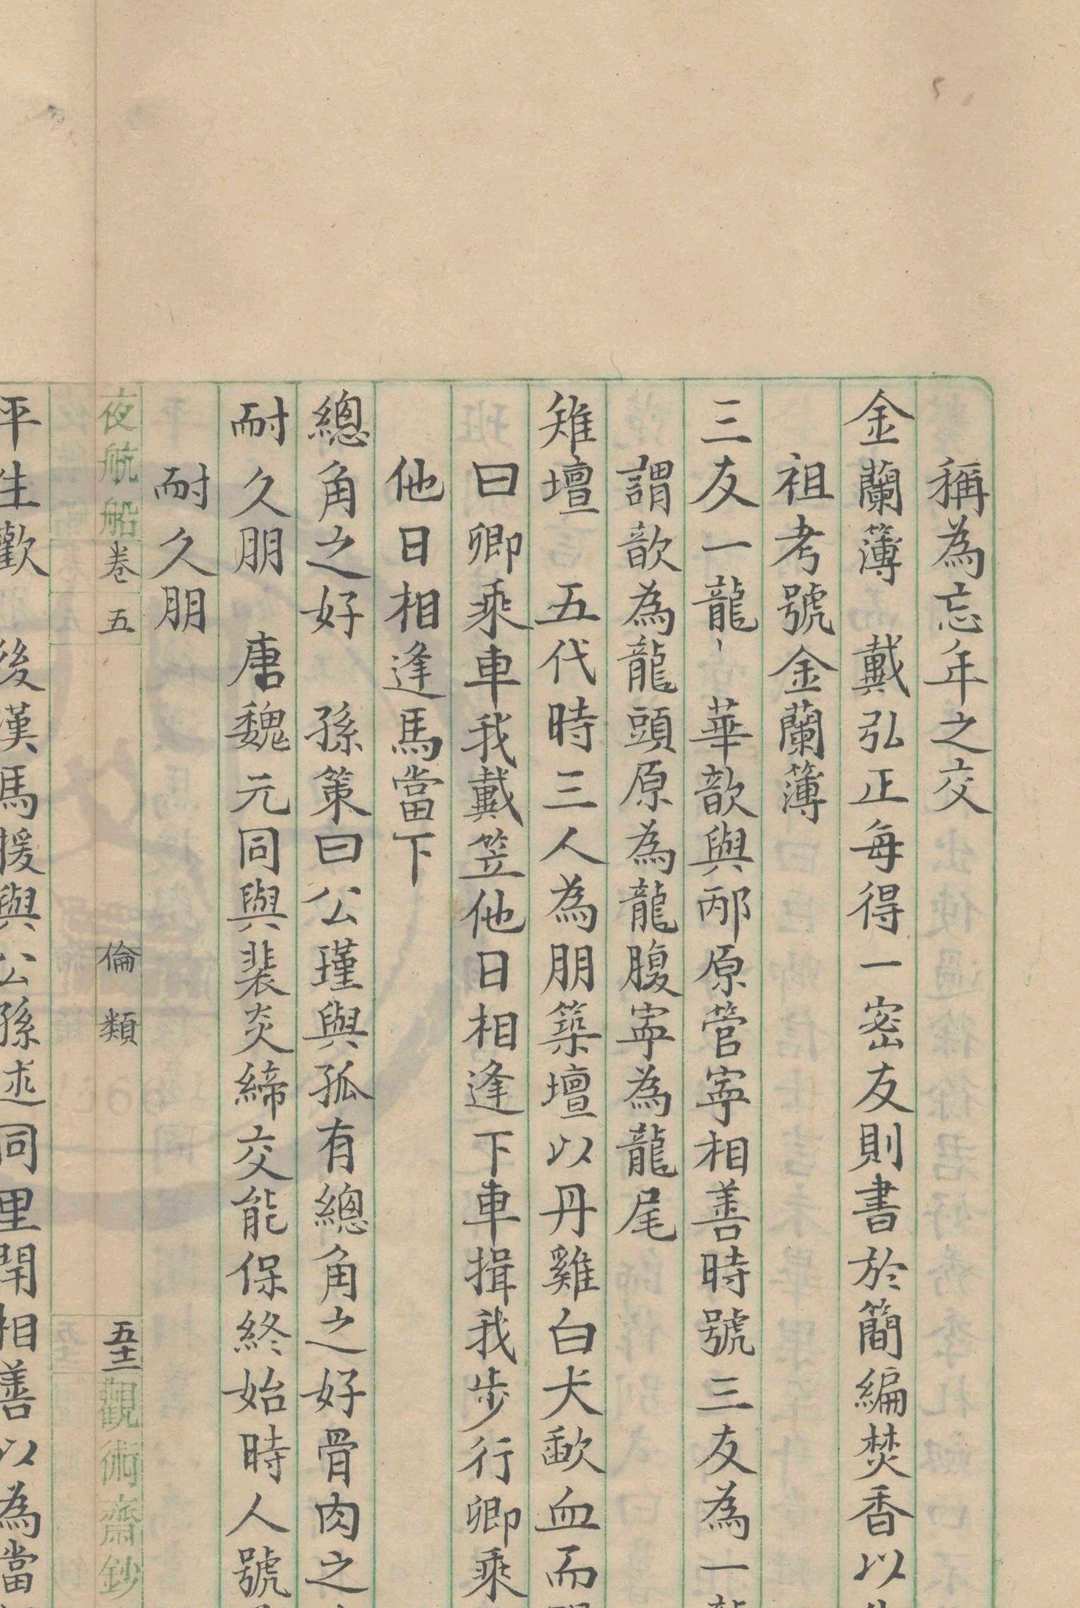 稱為忘年之交
金蘭簿　戴弘正每得一密友則書於簡編焚香以
祖考號金蘭簿
三友一龍　華歆與邴原管寧相善時號三友為一
謂歆為龍頭原為龍腹寧為龍尾
雉壇　五代時三人為朋築壇以丹雞白犬歃血而
曰卿乘車我戴笠他日相逢下車揖我步行卿乘
他日相逢馬當下
總角之好　孫策曰公瑾與孤有總角之好骨肉之
耐久朋　唐魏元同與裴炎締交能保終始時人號
耐久朋
夜航船卷五　倫類　五十二　觀術齋鈔
平生歡　後漢馬援與公孫述同里閈相善以為當